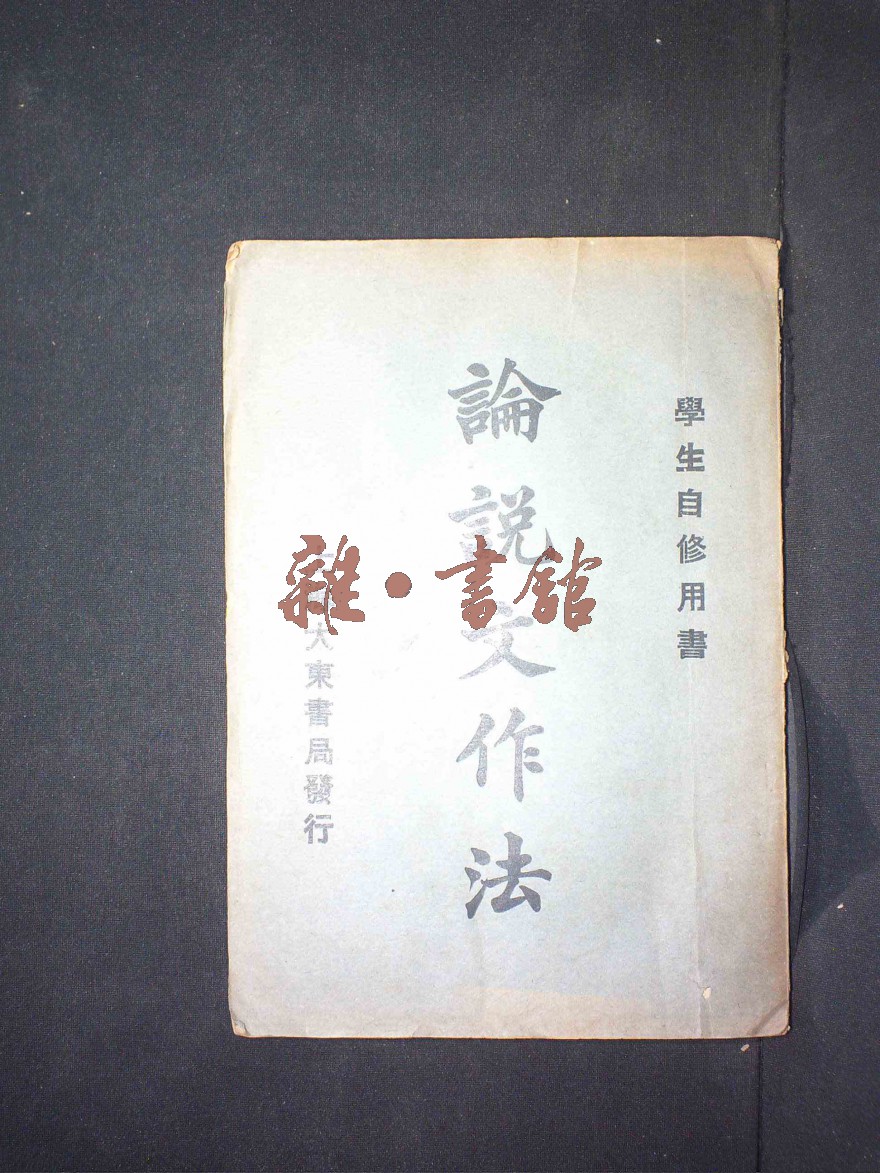 學生自修用書
論説文作法
大東書局發行
雜·書館